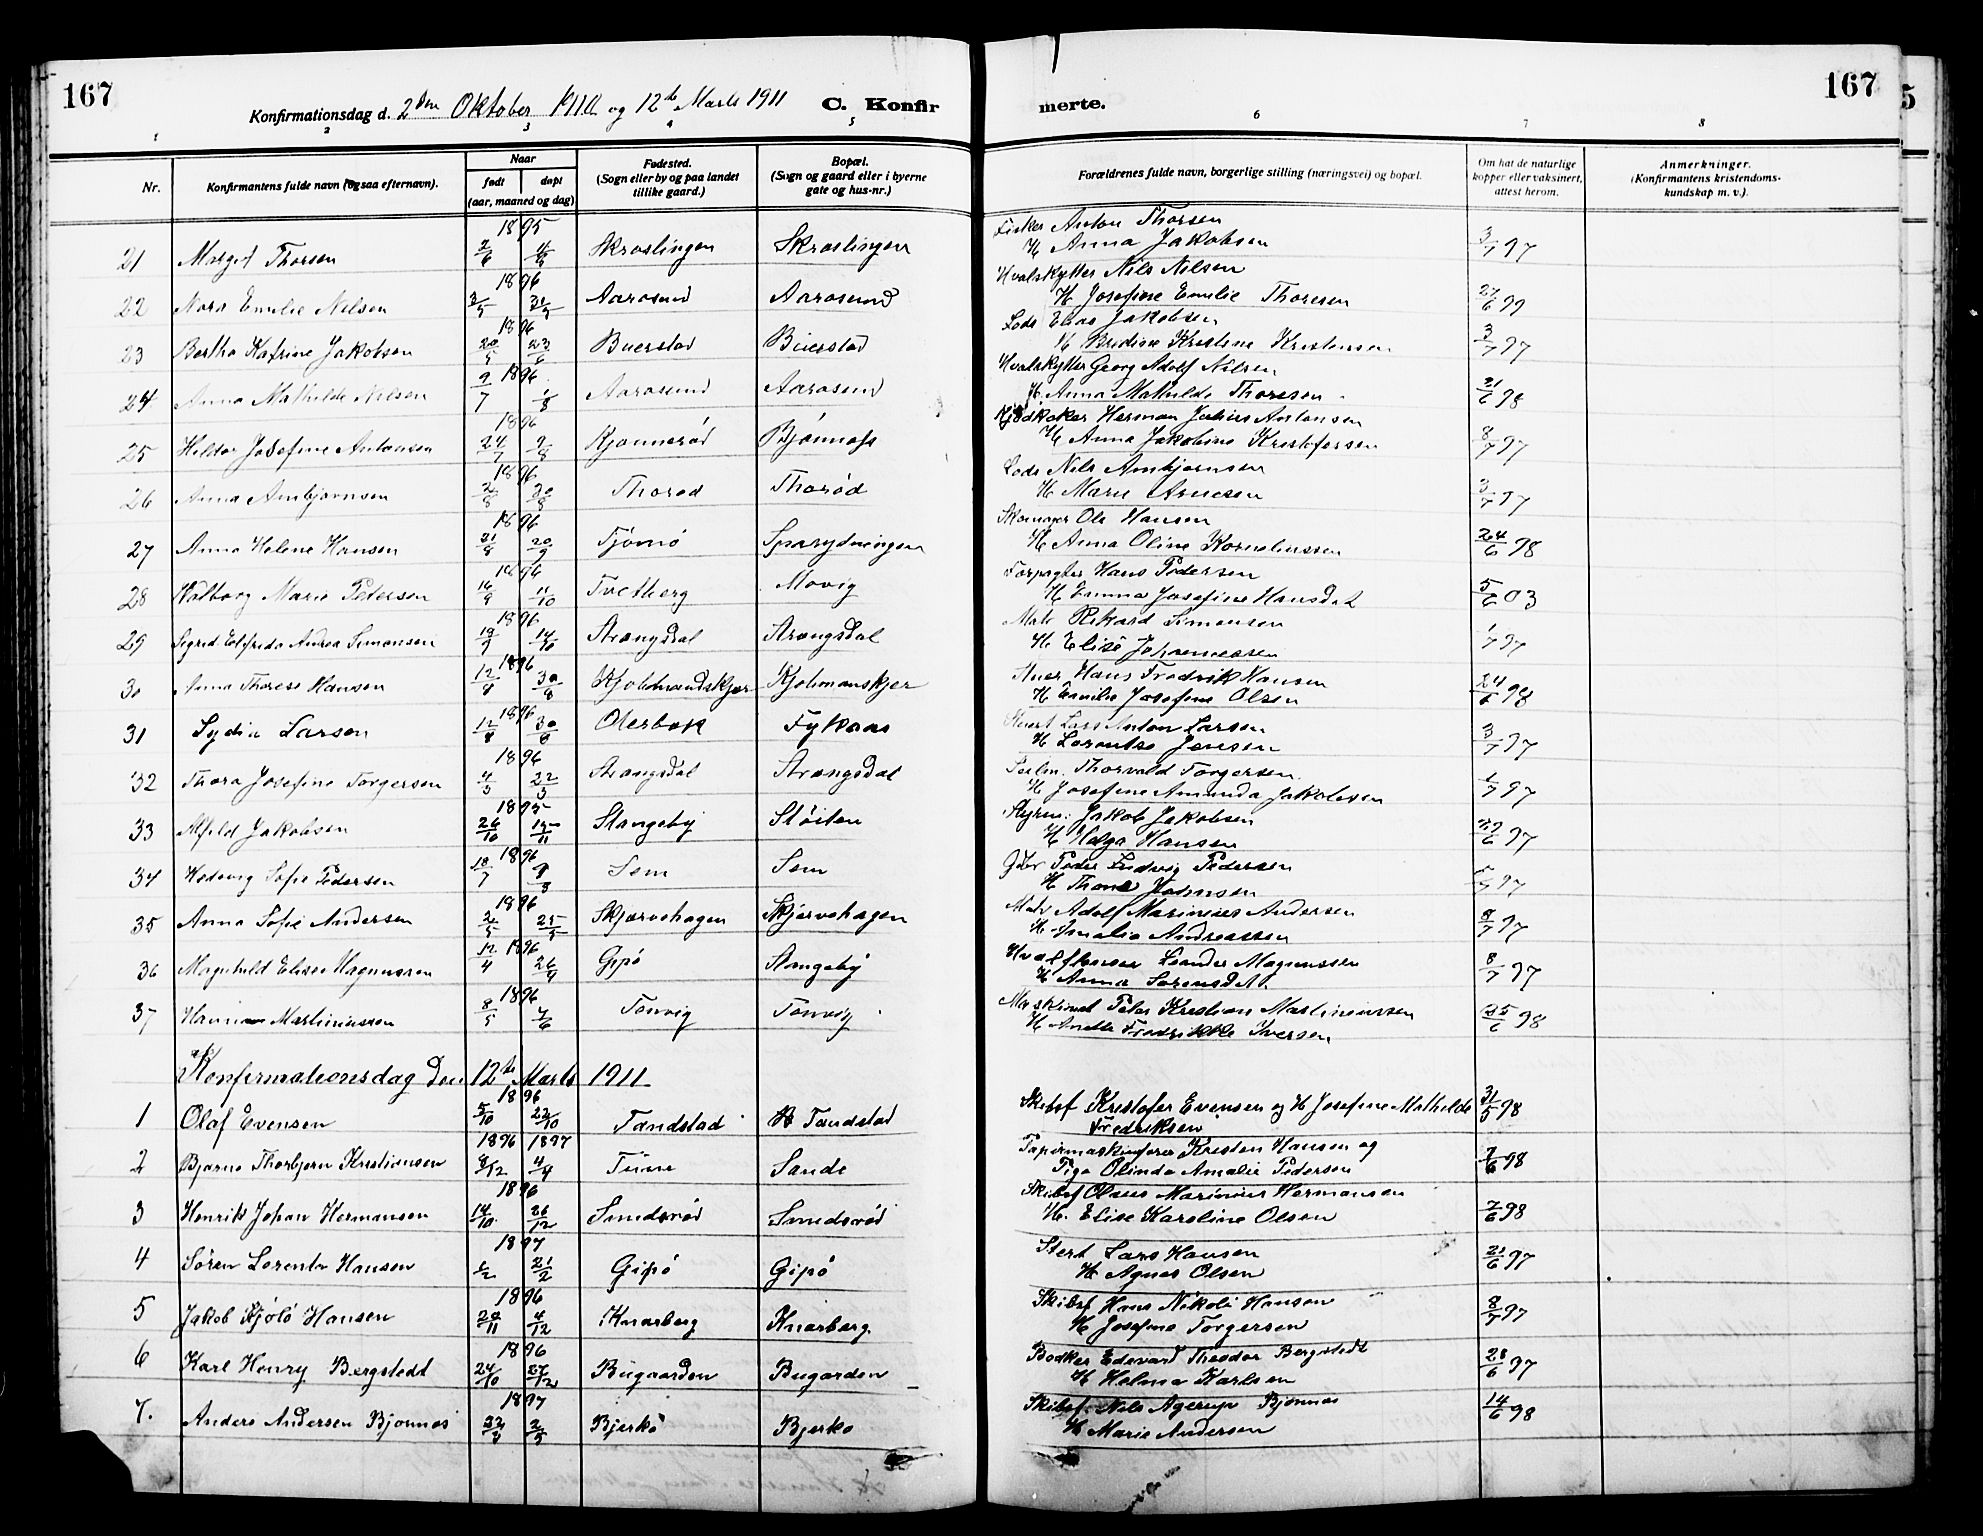 167
Konfirmationsdag d. 2den Oktober 1910 og 12te Marts 1911 C. Konfirmerte. 167
1 2 3 4 5 6 7 8
Nr. Konfirmantens fulde navn (ogsaa efternavn). Naar født døpt (aar, maaned og dag) Fødested. (Sogn eller by og paa landet tillike gaard.) Bopæl. (Sogn og gaard eller i byerne gate og hus-nr.) Forældrenes fulde navn, borgerlige stilling (næringsvei) og bopæl. Om hat de naturlige kopper eller vaksinert, attest herom. Anmerkninger. (Konfirmantens kristendomskundskap m. v.).
21 Margit Thorsen 1895 Skrostingen Skrostingen Fisker Anton Thorsen
H Anna Jakobsen 3/7 97
22 Nora Emilie Nilsen 1896 3/5 31/5 Aarosund Aarosund Hvalskytter Nils Nilsen
H Josefine Emilie Thoresen 27/6 99
23 Bertha Katrine Jakobsen 1896 20/5 23/6 Buerstad Buerstad Lods Elias Jakobsen
H Bredine Kristine Kristensen 3/7 97
24 Anna Mathilde Nilsen 1896 9/7 1/8 Aarosund Aarosund Hvalskytter Georg Adolf Nilsen
H. Anna Mathilde Thoresen 21/6 98
25 Hildor Josefine Antonsen 1896 24/7 9/8 Kjonnerød Bjønness Kjødkoker Herman Julius Antonsen
H Anna Jakobine Kristofersen 8/7 97
26 Anna Ambjørnsen 1896 2/8 30/8 Thorød Thorød Lods Nils Ambjørnsen
H Marie Arnesen 3/7 97
27 Anna Helene Hansen 1896 21/8 20/9 Tjømø Sparrydningen Skomager Ole Hansen
H Anna Oline Korneliussen 24/6 98
28 Valborg Marie Pedersen 1896 16/9 11/10 Tvetberg Movig Forpagter Hans Pedersen
H Emma Josefine Hansdat 5/6 03
29 Sigrid Elfrida Andrea Simonsen 1896 19/9 14/10 Arøngsdal Arøngsdal Mate Rikard Simonsen
H Elise Johannessen 1/7 97
30 Anna Therese Hansen 1896 12/8 30/8 Kjolmandskjær Kjolmanskjer Stuer Hans Fredrik Hansen
H Emilie Josefine Olsen 24/6 98
31 Lydia Larsen 1896 12/8 30/8 Oterbæk Fykaas Stuert Lars Anton Larsen
H Lorentse Jensen 3/7 97
32 Thora Josefine Torgersen 1896 4/3 22/3 Arøngsdal Arøngsdal Seilm. Thorvald Torgersen
H Josefine Amanda Jakobsen 1/7 97
33 Alfild Jakobsen 1895 26/10 15/11 Stangeby Støiten Styrm: Jakob Jakobsen
H Helga Hansen 29/6 97
34 Hedevig Sofie Pedersen 1896 18/7 9/8 Sem Sem Gbr Peder Ludvig Pedersen
H Thona Johnsen 97
35 Anna Sofie Andersen 1896 2/5 25/5 Skjærvehagen Skjervehagen Matr Adolf Marinius Andersen
H Amalia Andreassen 8/7 97
36 Magnhild Elise Magnussen 1896 12/4 26/4 Gipø Stangeby Hvalfanger Leander Magnussen
H Anna Sorensdat. 8/7 97
37 Martiniussen 1896 8/5 7/6 Tonvig Tonvig Maskinist Peter Kristian Martiniussen
H Anette Fredrikke Iversen 25/6 98
Konfirmationsdag den 12te Marts 1911
1 Olaf Evensen 1896 5/10 22/10 Tandstad Tandstad Skibsf Kristofer Evensen og H Josefine Mathilde
Fredriksen 31/5 98
2 Bjarne Thorbjørn Kristiansen 1896 1897 8/12 4/4 Tune Sande Papirmaskinfører Kristen Hansen og
Pige Olinda Amalie Pedersen 7/6 98
3 Henrik Johan Hermansen 1896 14/10 26/12 Smidsrød Smidsrød Skibsf Olaus Marinius Hermansen
H. Elise Karoline Olsen 7/6 98
4 Søren Lorents Hansen 1897 6/2 21/2 Gipø Gipø Stert Lars Hansen
H Agnes Olsen 21/6 97
5 Jakob Kjølø Hansen 1896 20/11 4/12 Knarberg Knarberg Skibsf Hans Nikoli Hansen
H Josefine Torgersen 8/7 97
6 Karl Henry Bergstedt 1896 24/10 27/12 Bugaarden Bugarden Bødker Edevard Theodor Bergstedt
H Helma Karlsen 28/6 97
7. Anders Andersen Bjønnes 1897 Bjerkø Bjerko Skibsf Nils Agerup Bjønnes
H Marie Andersen 14/6 98